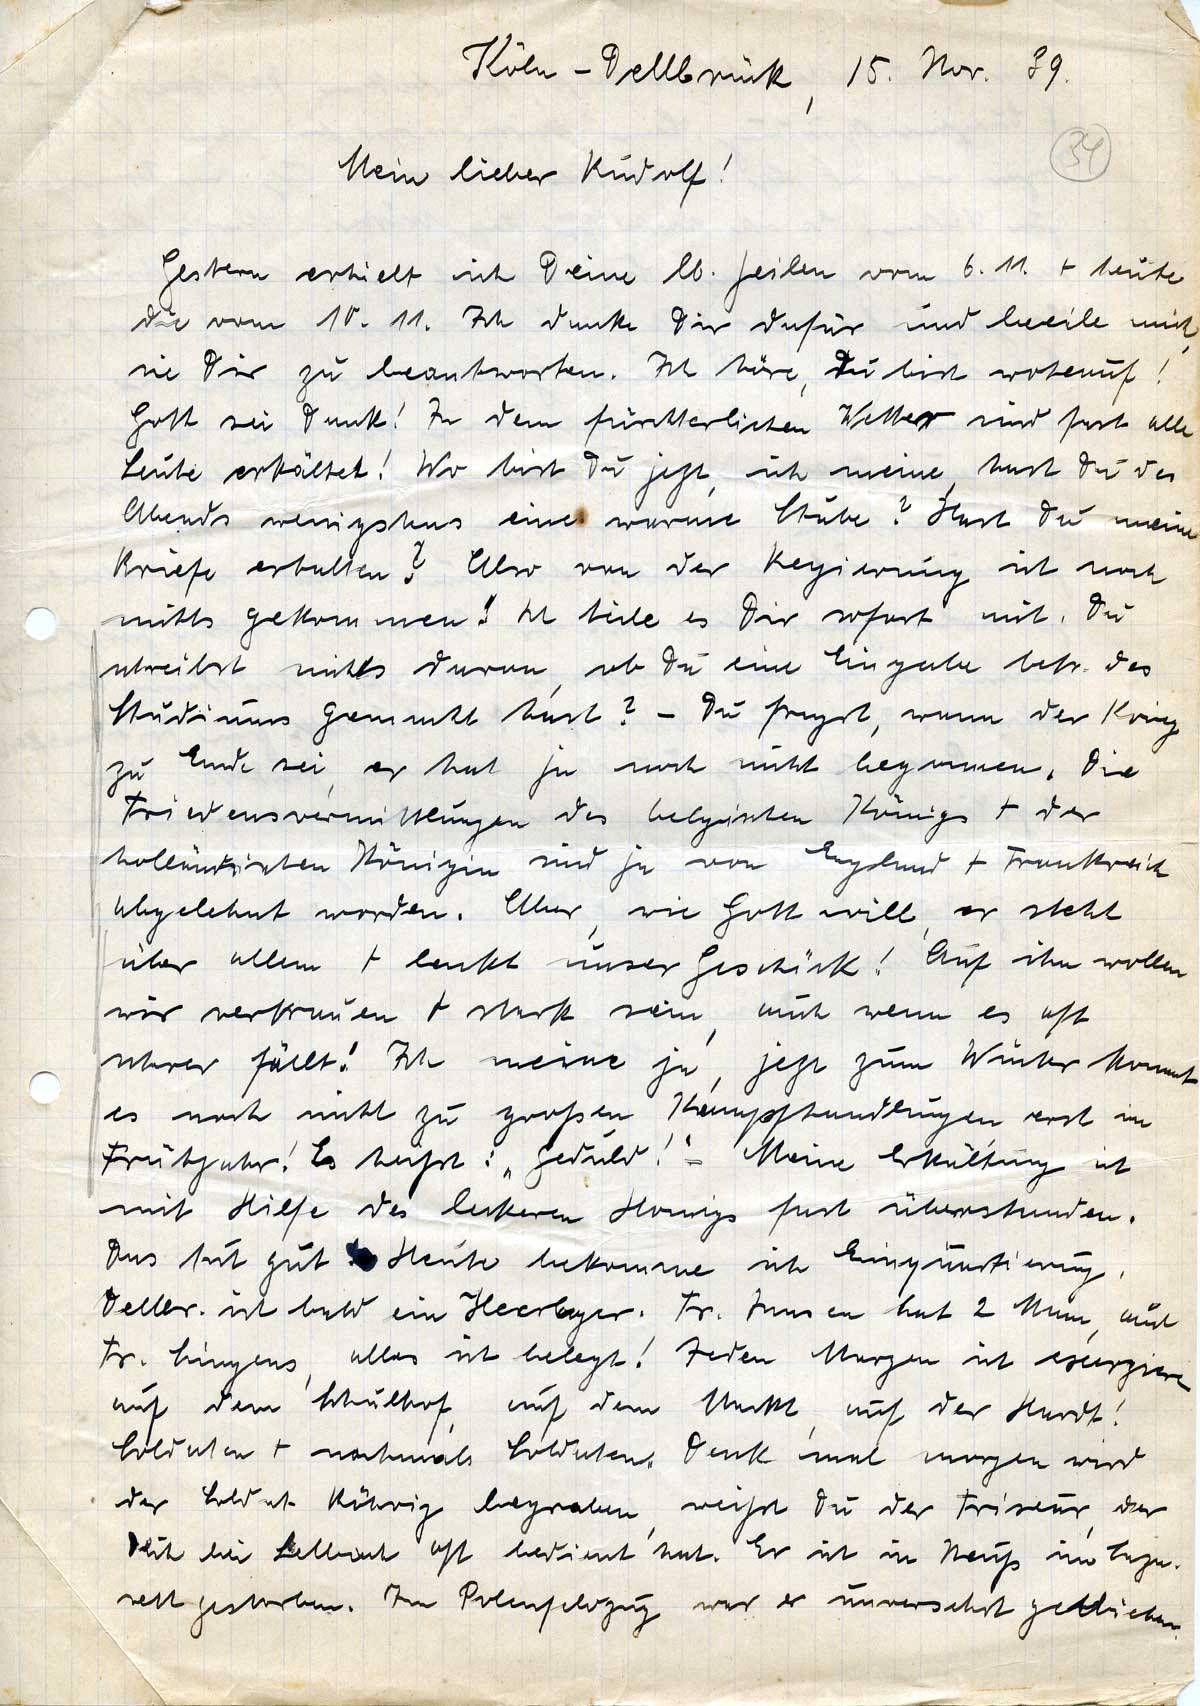 Köln-Dellbrück, 15. Nov. 39.
34
Mein lieber Rudolf!
Gestern erhielt ich Deine lb. Zeilen vom 6.11. + heute
die vom 10.11. Ich danke Dir dafür und beeile mich,
sie Dir zu beantworten. Ich höre, Du bist wohlauf!
Gott sei Dank! In dem fürchterlichen Wetter sind fast alle
Leute erkältet! Wo bist Du jetzt, ich meine, hast Du des
Abends wenigstens eine warme Stube? Hast Du meine
Briefe erhalten? Also von der Regierung ist noch
nichts gekommen! Ich teile es Dir sofort mit. Du
schreibst nichts davon, ob Du eine Eingabe betr. des
Studiums gemacht hast? - Du fragst, wann der Krieg
zu Ende sei, er hat ja noch nicht begonnen. Die
Friedensvermittlungen des belgischen Königs + der
holländischen Königin sind ja von England + Frankreich
abgelehnt worden. Aber, wie Gott will, er steht
über allem + lenkt unser Geschick! Auf ihn wollen
wir vertrauen + stark sein, auch wenn es oft
schwer fällt! Ich meine ja, jetzt zum Winter kommt
es noch nicht zu großen Kampfhandlungen erst im
Frühjahr! Es heißt: „Geduld!" - Meine Erkältung ist
mit Hilfe des leckeren Honigs fast überstanden.
Das tut gut! Heute bekomme ich Einquartierung.
Dellbr. ist bald ein Heerlager. Fr. Jansen hat 2 Mann, auch
Fr. Lingens, alles ist belegt! Jeden Morgen ist exerzieren
auf dem Schulhof, auf dem Markt, auf der Hardt!
Soldaten + nochmals Soldaten. Denk mal morgen wird
der Soldat Röhrig begraben, weißt Du der Friseur, der
Dich bei oft bedient hat. Er ist in Neuß im Laza-
rett gestorben. Im Polenfeldzug war er unversehrt geblieben.